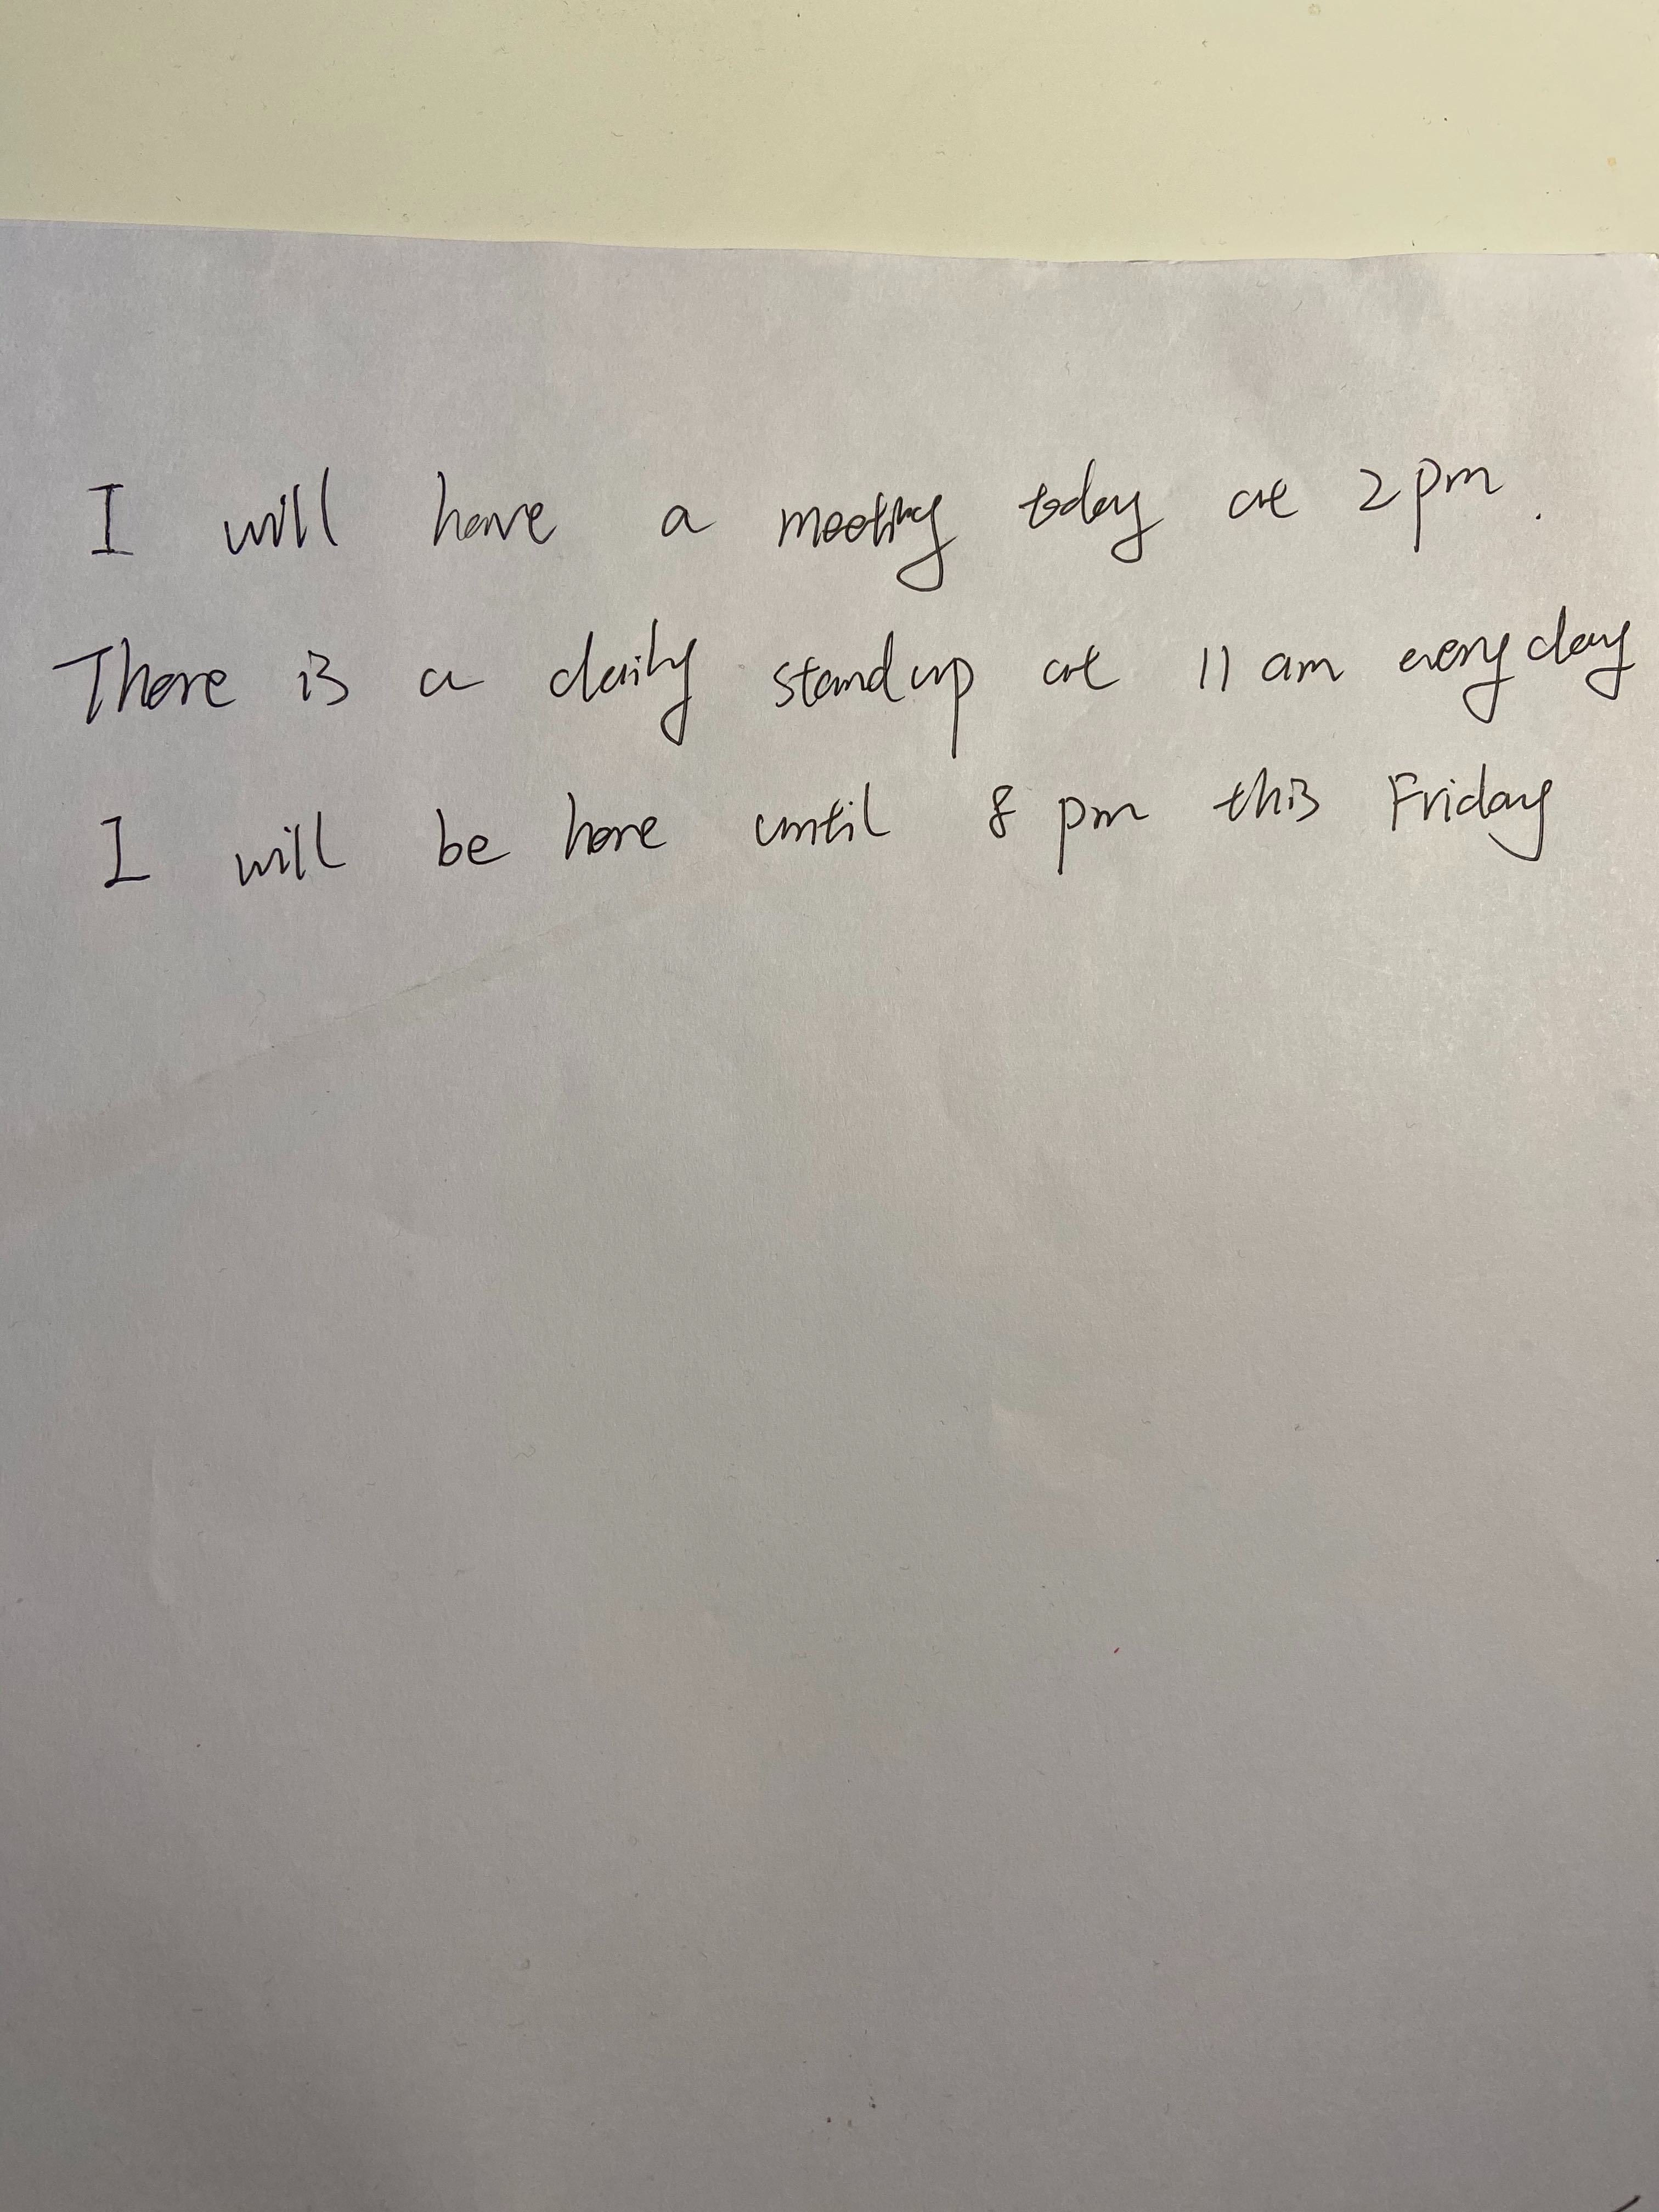 I will have a meeting today at 2 pm.
There is a daily standup at 11 am every day
I will be here until 8 pm this Friday